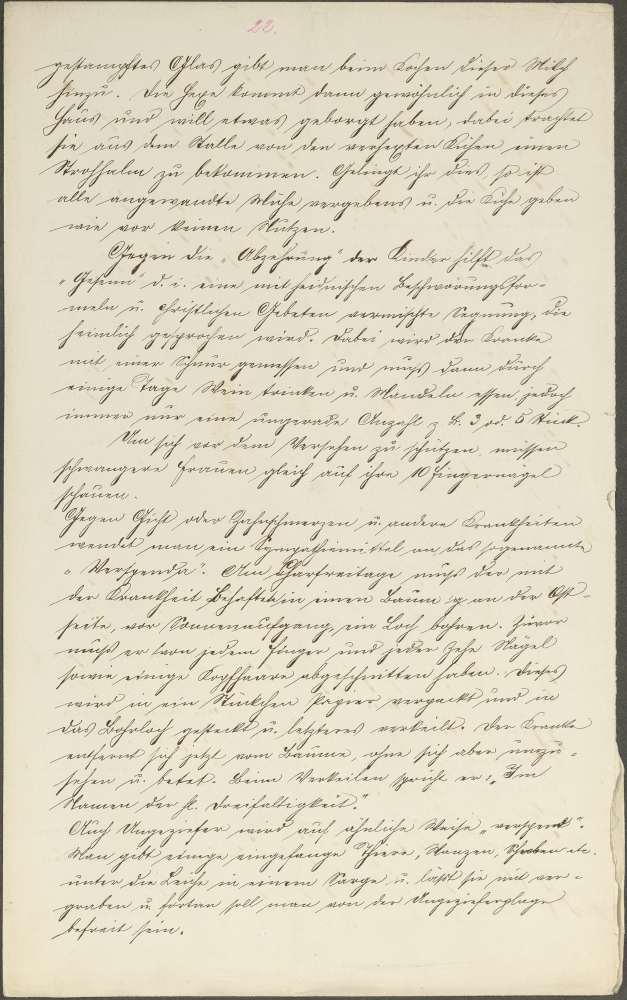 22.
gestampftes Glas gibt man beim Kochen dieser Milch
hinzu. Die Hexe kommt dann gewöhnlich in dieses
Haus und will etwas geborgt haben, dabei trachtet
sie aus dem Stalle von den verhexten Kühen einen
Strohhalm zu bekommen. Gelingt ihr dies, so ist
alle angewandte Mühe vergebens u. die Kühe geben
wie vor keinen Nutzen.
Gegen die „Abzehrung" der Kinder hilft das
d. i. eine mit heidnischen Beschwörungsfor-
meln u. christlichen Gebeten vermischte Segnung, die
heimlich gesprochen wird. Dabei wird der Kranke
mit einer Schnur gemessen und muß dann durch
einige Tage Wein trinken u. Mandeln essen, jedoch
immer nur eine ungerade Anzahl z. B. 3 od. 5 Stück.
Um sich vor dem Versehen zu schützen, müssen
schwangere Frauen gleich auf ihre 10 Fingernägel
schauen.
Gegen Gicht oder Zahnschmerzen u. andere Krankheiten
wendet man ein Sympathiemittel an das sogenannte
„Verspenda". Am Charfreitage muß der mit
der Krankheit Behaftete in einen Baum u. an der Ost-
seite, vor Sonnenaufgang, ein Loch bohren. Zuvor
muß er von jedem Finger und jeder Zehe Nägel
sowie einige Kopfhaare abgeschnitten haben. Dieses
wird in ein Stückchen Papier verpackt und in
das Bohrloch gesteckt u. letzteres verkeilt. Der Kranke
entfernt sich jetzt vom Baume, ohne sich aber umzu-
sehen u. betet. Beim Verkeilen spricht er: „Im
Namen der hl. Dreifaltigkeit."
Auch Ungeziefer wird auf ähnliche Weise „verspent".
Man gibt einige eingefange Thiere, Wanzen, Schaben etc.
unter die Leiche in einem Sarge u. läßt sie mit ver-
graben u. fortan soll man von der Ungezieferplage
befreit sein.